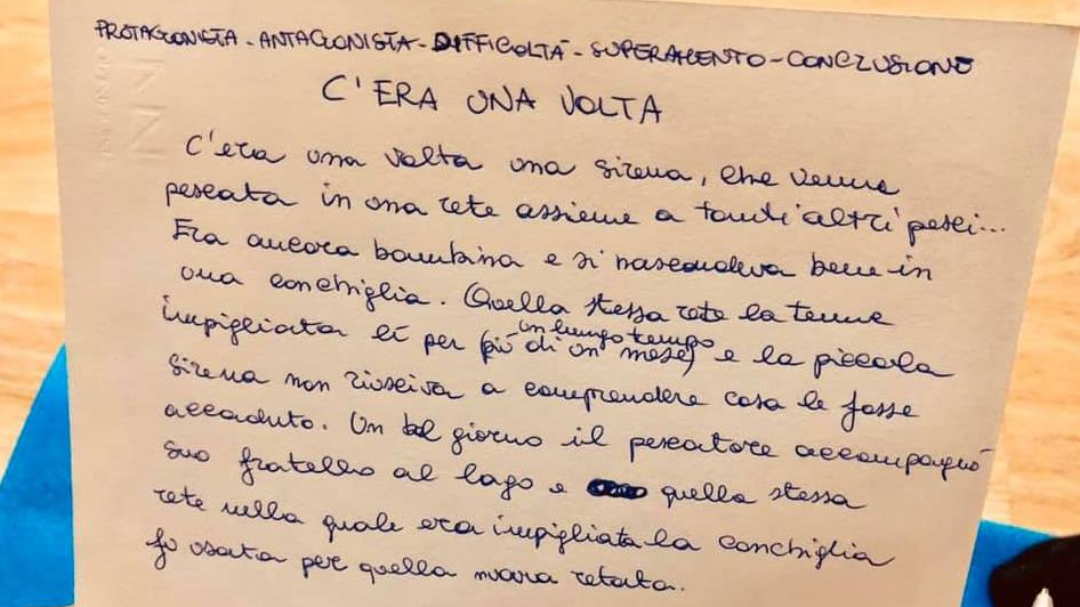 PROTAGONISTA - ANTAGONISTA - DIFFICOLTÀ - SUPERAMENTO - CONCLUSIONE
C'ERA UNA VOLTA
C'era una volta una sirena, che venne
pescata in una rete assieme a tanti altri pesci...
Era ancora bambina e si nascondeva bene in
una conchiglia. Quella stessa rete la tenne
un lungo tempo
impigliata lì per (più di un mese) e la piccola
sirena non riusciva a comprendere cosa le fosse
accaduto. Un bel giorno il pescatore accompagnò
suo fratello al lago e quella stessa
rete nella quale era impigliata la conchiglia
fu usata per quella nuova retata.